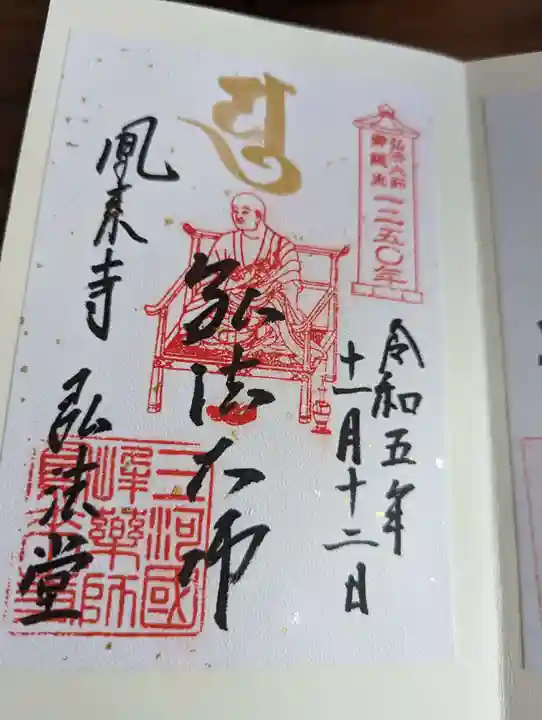 弘法大師
御誕生
一二五〇年
令和五年
十一月十二日
弘法大師
鳳来寺 弘法堂
三河國
峰藥師